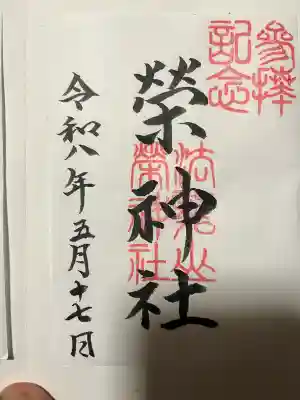 參拝
記念
榮神社
榮神社
令和八年五月十七日